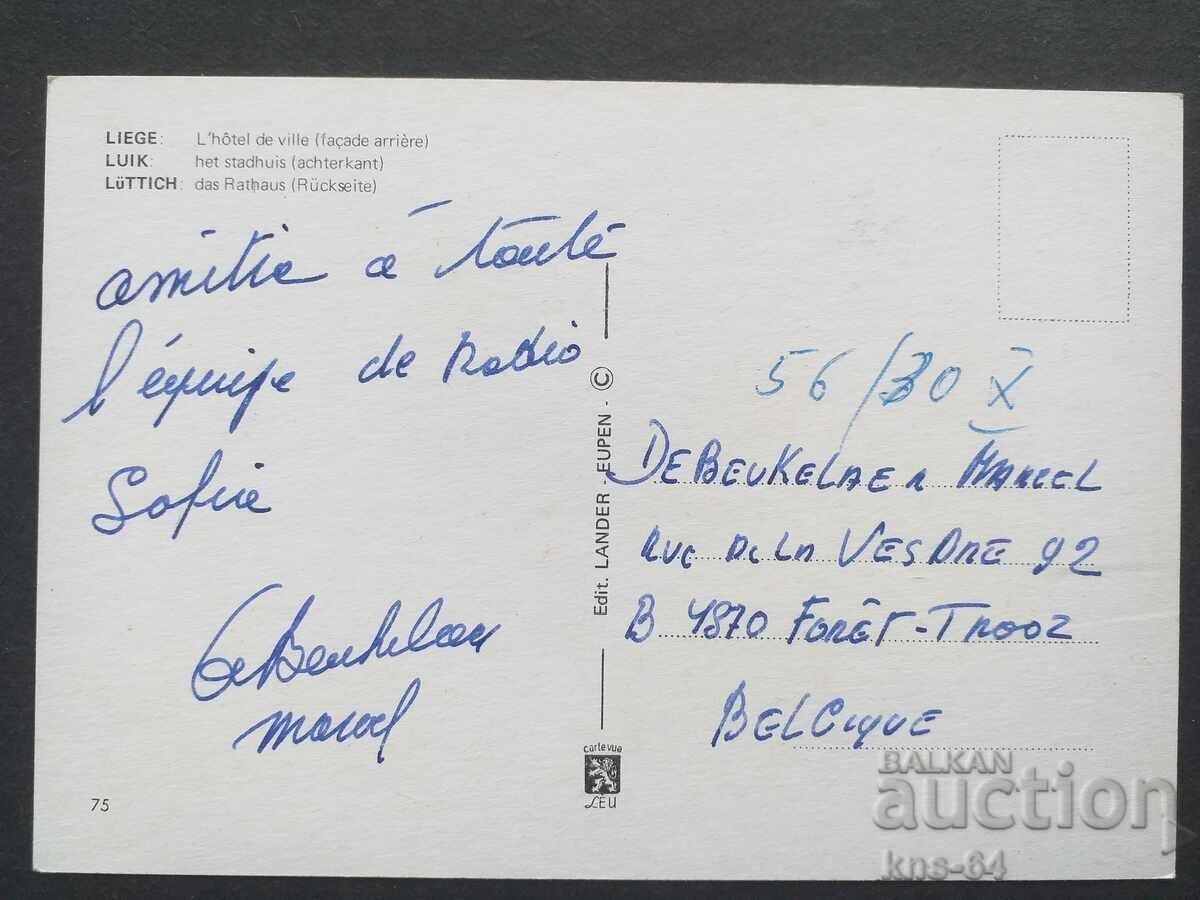 LIEGE: L'hôtel de ville (façade arrière)
LUIK: het stadhuis (achterkant)
LüTTICH: das Rathaus (Rückseite)
amitié à toute
l'équipe de Radio
Sofia
De Beukelaer
Marcel
75
Edit. LANDER EUPEN - ©
carte vue
LEU
56/30 X
DEBEUKELAER MARCEL
RUE DE LA VESDRE 92
B 4870 FORÊT-TROOZ
BELGIQUE
BALKAN
auction
kns-64